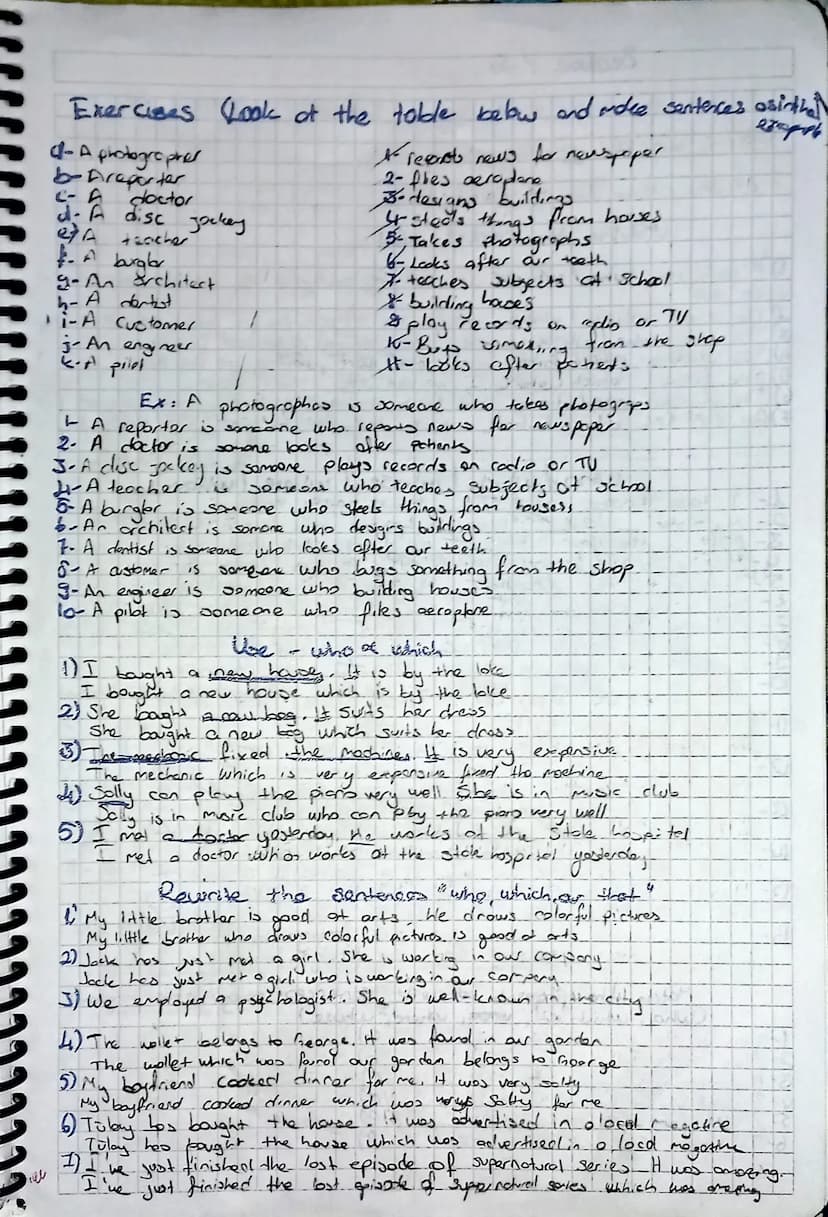 Exercises (Look at the table below and make sentences as in the example)
a- A photographer
b- A reporter
c- A doctor
d- A disc jockey
e) A teacher
f- A burglar
g- An architect
h- A dentist
i- A customer
j- An engineer
k- A pilot
1- records news for newspaper
2- flies aeroplane
3- designs buildings
4- steals things from houses
5- Takes photographs
6- Looks after our teeth
7- teaches subjects at school
8- building houses
9- play records on radio or TV
10- Buys something from the shop
11- looks after patients
Ex: A photographes is someone who takes photogrps
1- A reporter is someone who reports news for newspaper
2- A doctor is somone looks after patients
3- A disc jockey is somoone plays records on radio or TU
4- A teacher is someone who teaches subjects at school
5- A burglar is someone who steels things from houses
6- An architest is somone who designs buildings
7- A dentist is someone who looks after our teeth
8- A customer is someone who buys something from the shop
9- An engineer is someone who building houses
10- A pilot is someone who flies aeroplane
Use - who or which
1) I bought a new house. It is by the lake
I bought a new house which is by the lake
2) She bought a new bag. It suits her dress
She bought a new bag which suits her dress
3) The mechanic fixed the machines. It is very expensive
The mechanic which is very expensive fixed the machine
4) Sally can play the piano very well She is in music club
Sally is in music club who can play the piano very well
5) I met a doctor yesterday. He works at the State hospital
I met a doctor works at the state hospital yesterday
Rewrite the sentences "who, which, or that"
1) My little brother is good at arts. He draws colorful pictures
My little brother who draws colorful pictures is good at arts
2) Jack has just met a girl. She is working in our company
Jack has just met a girl who is working in our company
3) We employed a psychologist. She is well-known in the city
4) The wallet belongs to George. It was found in our garden
The wallet which was found our garden belongs to George
5) My boyfriend cooked dinner for me. It was very salty
My boyfriend cooked dinner which was very salty for me
6) Tülay has bought the house. It was advertised in a local magazine
Tülay has bought the house which was advertised in a local magazine
7) I've just finished the last episode of supernatural series It was amazing.
I've just finished the last episode of supernatural series which was amazing